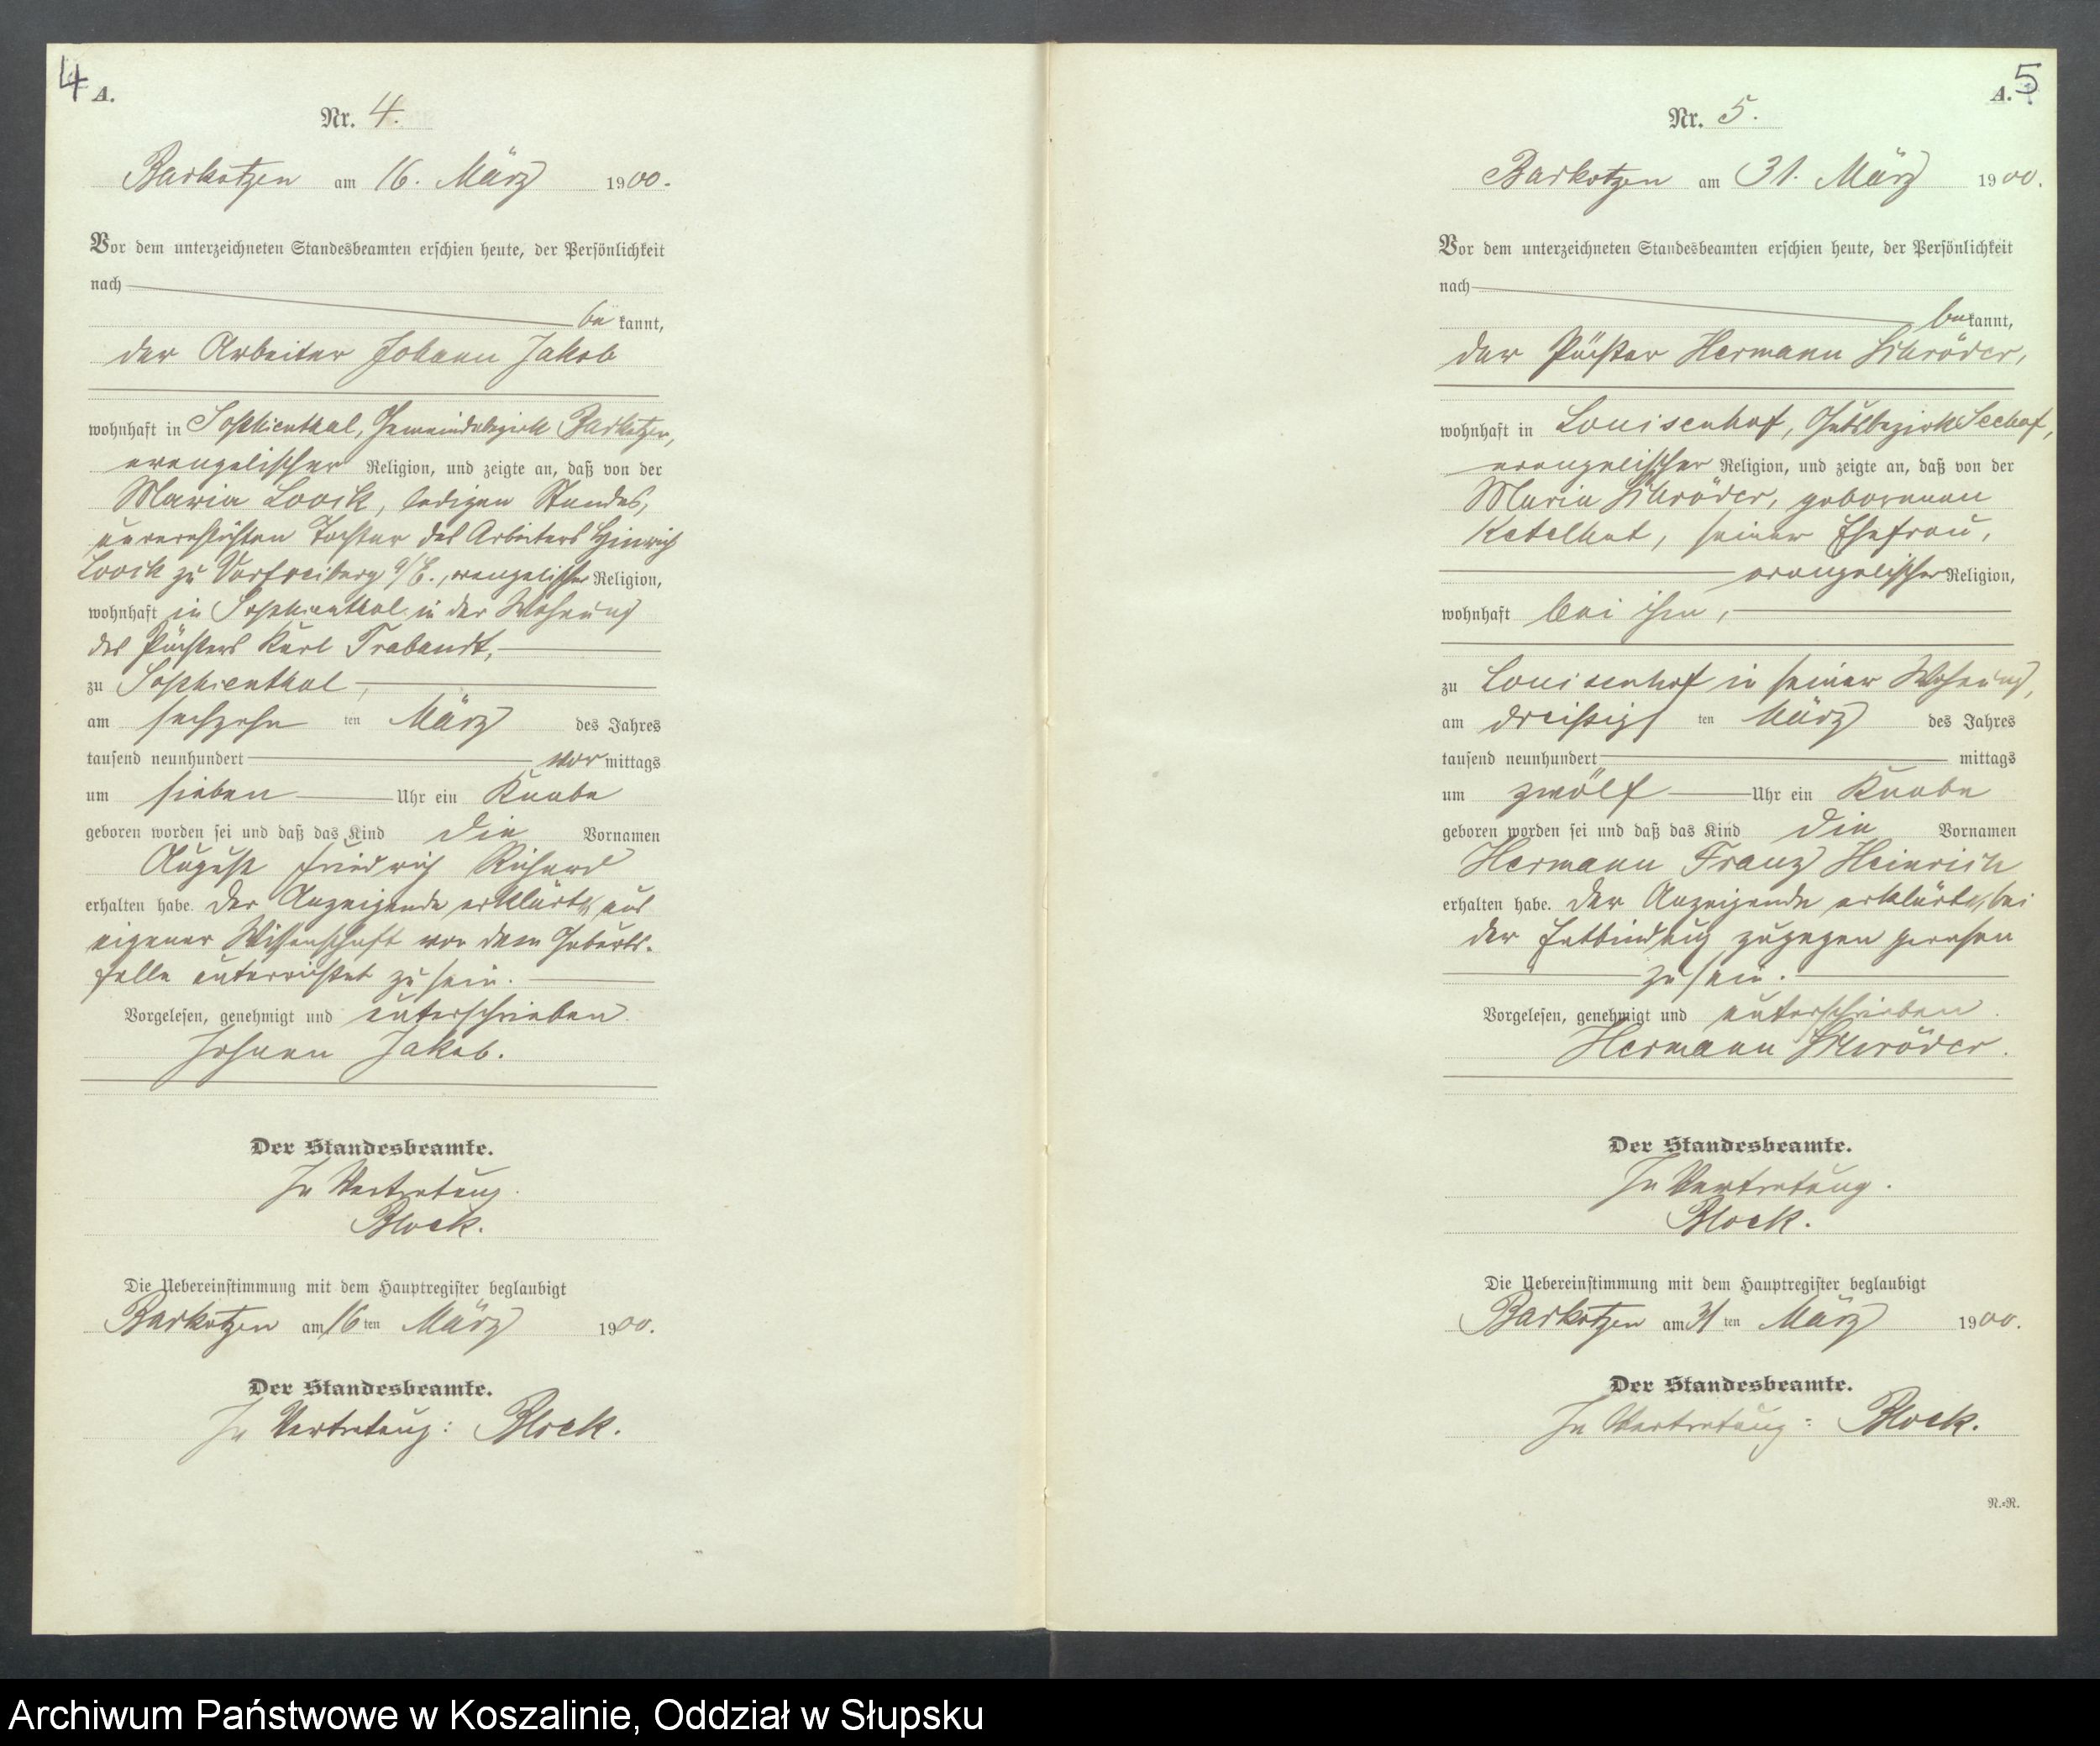 4
A.
Nr. 4.
Barkotzen am 16. März 1900.
Vor dem unterzeichneten Standesbeamten erschien heute, der Persönlichkeit
nach
be kannt,
der Arbeiter Johann Jakob
wohnhaft in Sophienthal, Gemeindebezirk Barkotzen,
evangelischer Religion, und zeigte an, daß von der
Maria Loock, ledigen Standes,
unverehelichten Tochter des Arbeiters Hinrich
Loock zu Dorf a/E., evangelischer Religion,
wohnhaft in Sophienthal in der Wohnung
des Pächters Karl Trabandt,
zu Sophienthal,
am sechzehn ten März des Jahres
tausend neunhundert vor mittags
um sieben Uhr ein Knabe
geboren worden sei und daß das Kind die Vornamen
August Friedrich Richard
erhalten habe. Der Anzeigende erklärte, aus
eigener Wissenschaft von dem Geburts-
falle unterrichtet zu sein.
Vorgelesen, genehmigt und unterschrieben.
Johann Jakob.
Der Standesbeamte.
In Vertretung.
Block.
Die Uebereinstimmung mit dem Hauptregister beglaubigt
Barkotzen am 16 ten März 1900.
Der Standesbeamte.
In Vertretung: Block.
5
A.
Nr. 5.
Barkotzen am 31. März 1900.
Vor dem unterzeichneten Standesbeamten erschien heute, der Persönlichkeit
nach
be kannt,
der Pächter Hermann Schröder,
wohnhaft in Louisenhof, Gutsbezirk Seehof,
evangelischer Religion, und zeigte an, daß von der
Maria Schröder, geborenen
Ketelhut, seiner Ehefrau,
evangelischer Religion,
wohnhaft bei ihm,
zu Louisenhof in seiner Wohnung,
am dreißigs ten März des Jahres
tausend neunhundert mittags
um zwölf Uhr ein Knabe
geboren worden sei und daß das Kind die Vornamen
Hermann Franz Heinrich
erhalten habe. Der Anzeigende erklärte, bei
der Entbindung zugegen gewesen
zu sein.
Vorgelesen, genehmigt und unterschrieben.
Hermann Schröder.
Der Standesbeamte.
In Vertretung.
Block.
Die Uebereinstimmung mit dem Hauptregister beglaubigt
Barkotzen am 31 ten März 1900.
Der Standesbeamte.
In Vertretung: Block.
N.-N.
Archiwum Państwowe w Koszalinie, Oddział w Słupsku